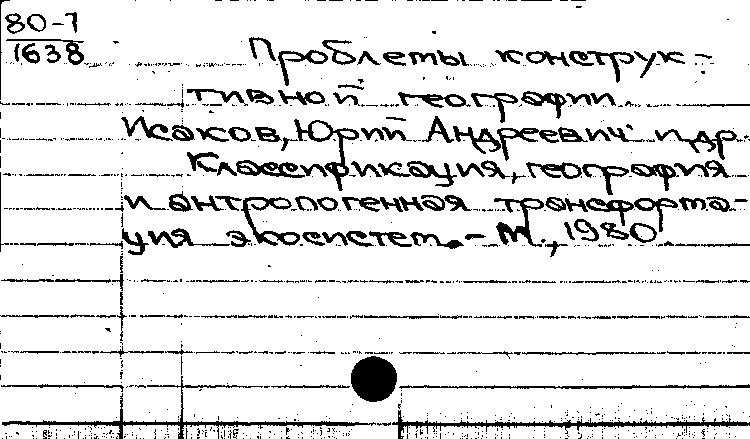 80-7
1638
Проблемы конструк-
тивной географии.
Исаков, Юрий Андреевич и др.
Классификация, география
и антропогенная трансформа-
ция экосистем. - М., 1980.